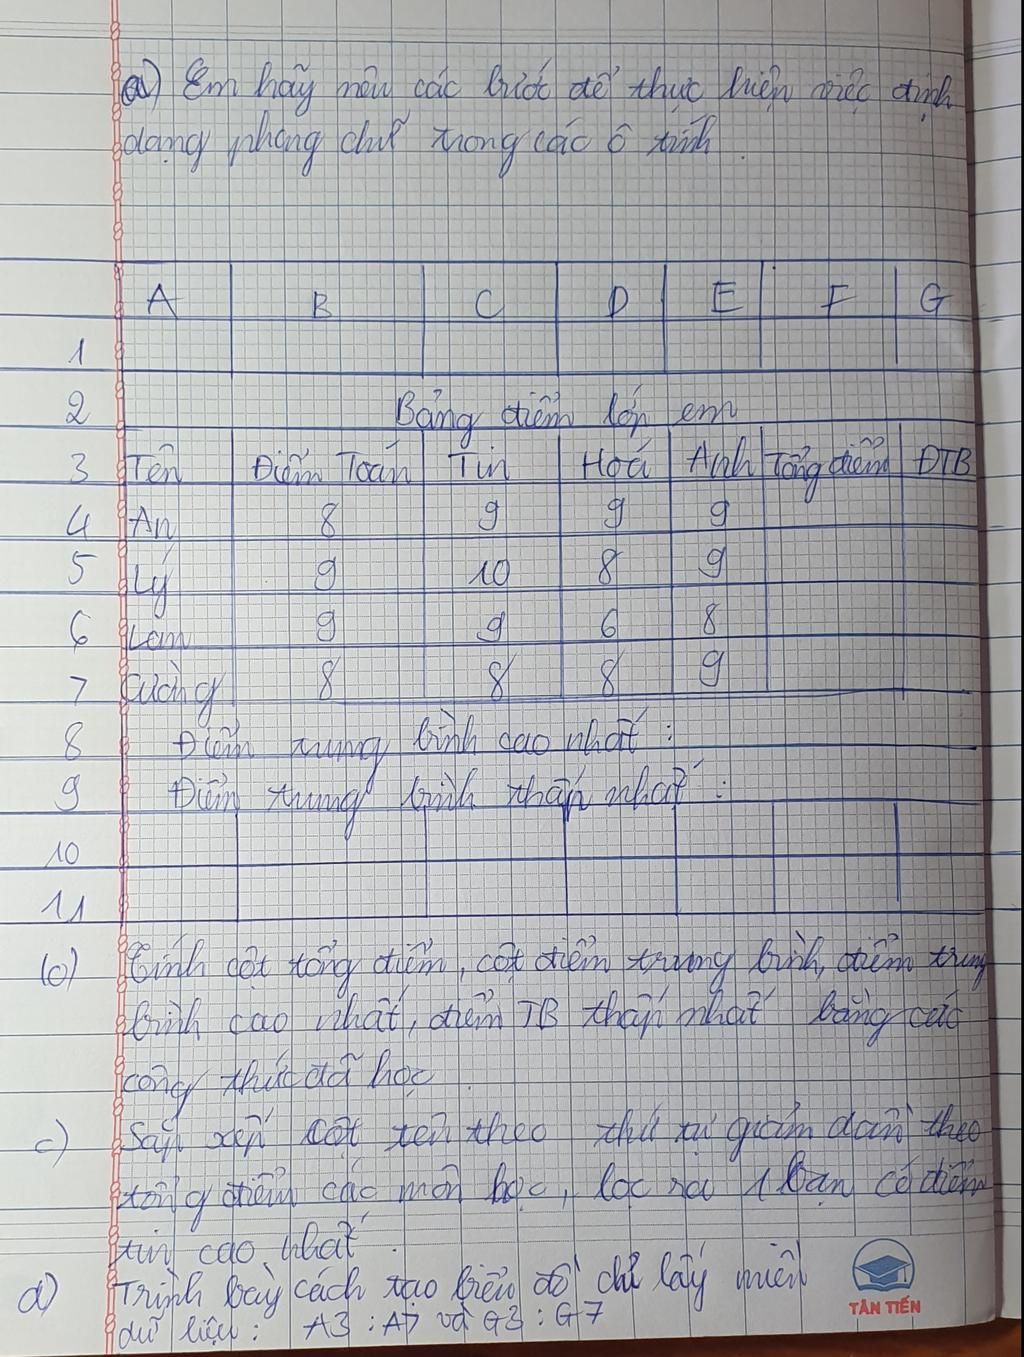 a) Em hãy nêu các bước để thực hiện việc định
dạng phông chữ trong các ô tính.
A B C D E F G
1
2 Bảng điểm lớp em
3 Tên Điểm Toán Tin Hoá Anh Tổng điểm ĐTB
4 An 8 9 9 9
5 Lý 9 10 8 9
6 Lam 9 9 6 8
7 Cường 8 8 8 9
8 Điểm trung bình cao nhất :
9 Điểm trung bình thấp nhất :
10
11
(c) Tính cột tổng điểm, cột điểm trung bình, điểm trung
bình cao nhất, điểm TB thấp nhất bằng các
công thức đã học
c) Sắp xếp cột tên theo thứ tự giảm dần theo
tổng điểm các môn học, lọc ra 1 bạn có điểm
tin cao nhất.
d) Trình bày cách tạo biểu đồ chỉ lấy miền
dữ liệu : A3 : A7 và G3 : G7
TÂN TIẾN